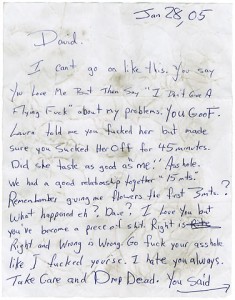 Jan 28, 05
David.
I cant go on like this. You say
You Love Me But Then Say "I Don't Give A
Flying Fuck" about my problems. YOU GOOF.
Laura told me you fucked her but made
sure you Sucked Her Off for 45 minutes.
Did she taste as good as me? Asshole.
We had a good relationship together 15 mts.
Remember giving me flowers the first 5 mts.?
What happened eh? Dave? I Love You but
you've become a piece of shit. Right is
Right and Wrong is Wrong. Go fuck your asshole
like I fucked yours. I hate you always.
Take Care and Drop Dead. You Said